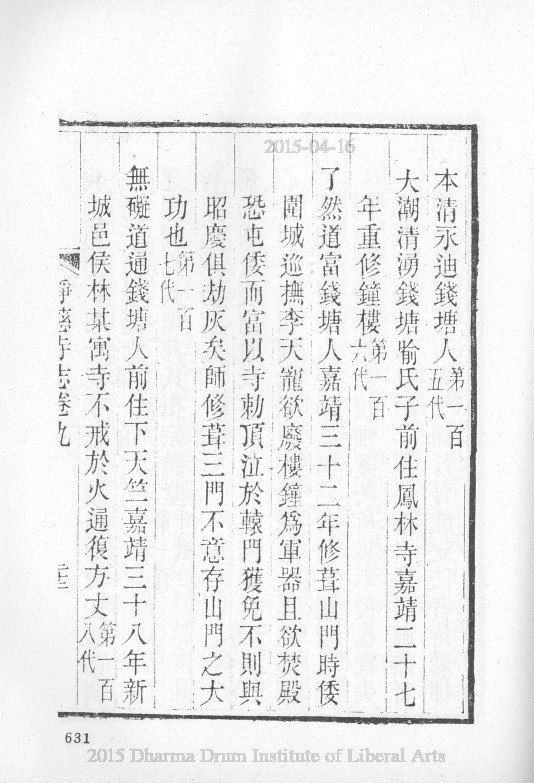 2015-04-16
本清永迪錢塘人第一百五代
大潮清湧錢塘喻氏子前住鳳林寺嘉靖二十七
年重修鐘樓第一百六代
了然道富錢塘人嘉靖三十二年修葺山門時倭
圍城巡撫李天寵欲廢樓鐘爲軍器且欲焚殿
恐屯倭而富以寺勅頂泣於轅門獲免不則與
昭慶俱劫灰矣師修葺三門不意存山門之大
功也第一百七代
無礙道通錢塘人前住下天竺嘉靖三十八年新
城邑侯林某寓寺不戒於火通復方丈第一百八代
淨慈寺志卷九
631
2015 Dharma Drum Institute of Liberal Arts